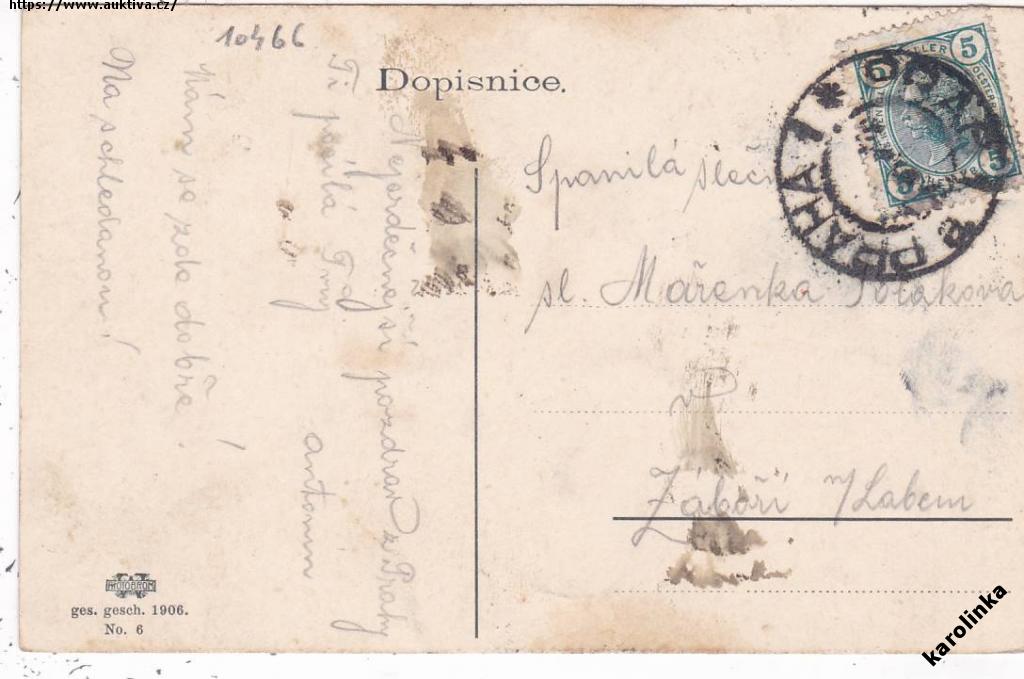 https://www.auktiva.cz/
10466
Dopisnice.
Nejsrdečnejší pozdrav z Prahy
Ti posílá Tvůj
antonín
Nám se zde dobře!
Na schledanou!
Spanilá sleč
sl. Mařenka
v
Záboří n/Labem
PRAHA 1 * PRAG
5 5
5 5
ges. gesch. 1906.
No. 6
karolinka